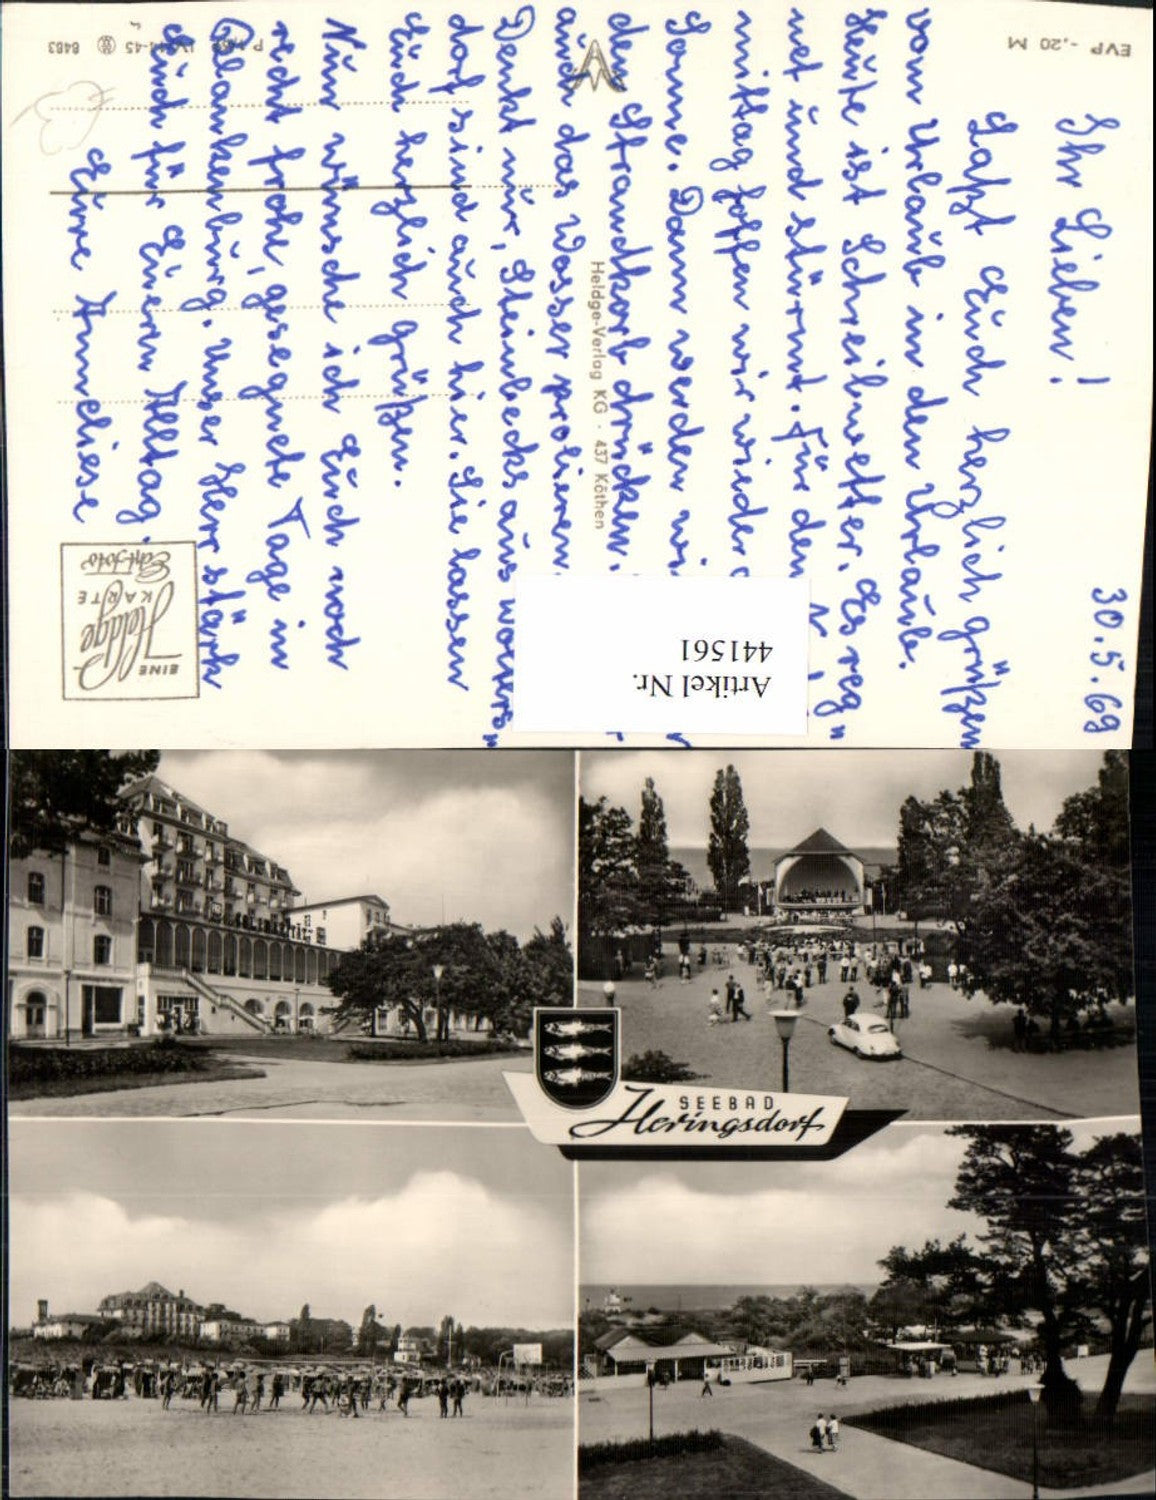 30.5.69
Ihr Lieben!
Laßt Euch herzlich grüßen
vom Urlaub in den Urlaub.
Heute ist Schreibwetter. Es reg"
net und stürmt. Für den
mittag hoffen wir wieder
Sonne. Dann werden wi
den Strandkorb drücken
auch das Wasser probieren.
Denkt nur, Steinbecks aus
dorf sind auch hier. Sie lassen
Euch herzlich grüßen.
Nun wünsche ich Euch noch
recht frohe, gesegnete Tage in
Blankenburg. Unser Herr stärk
Euch für Euern Alltag.
Eure Anneliese
EVP -,20 M
Heldge-Verlag KG · 437 Köthen
8483
EINE
Heldge
KARTE
Echtfoto
Artikel Nr.
441561
SEEBAD
Heringsdorf